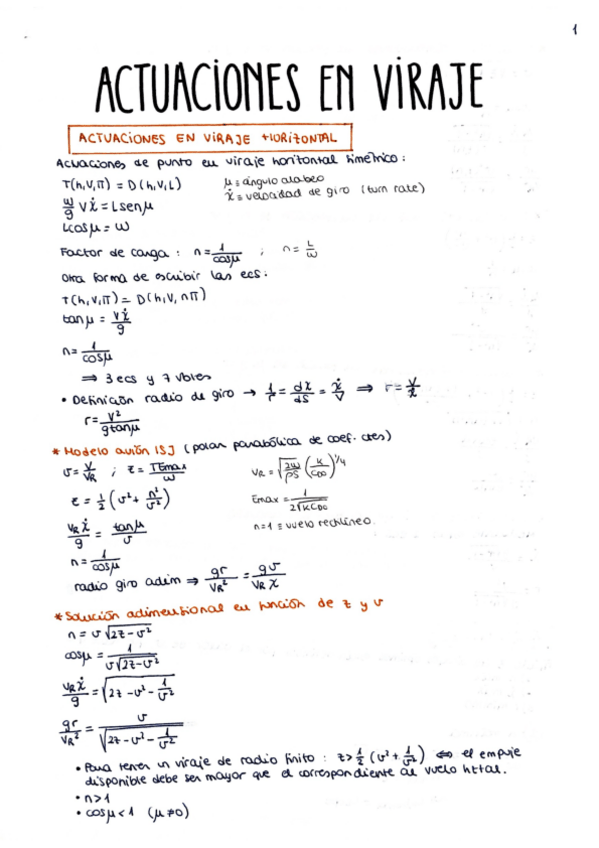 1
ACTUACIONES EN VIRAJE
ACTUACIONES EN VIRAJE HORIZONTAL
Actuaciones de punto en viraje horizontal simétrico:
T(h,V,π) = D(h,V,L)   μ ≡ ángulo alabeo
w/g V χ̇ = L sen μ   χ̇ ≡ velocidad de giro (turn rate)
L cos μ = w
Factor de carga : n = 1/cos μ ; n = L/w
Otra forma de escribir las ecs:
T(h,V,π) = D(h,V,nπ)
tan μ = Vχ̇/g
n = 1/cos μ
⇒ 3 ecs y 7 vbles
• Definición radio de giro → 1/r = dχ/dS = χ̇/V ⇒ r = V/χ̇
r = V²/(g tan μ)
* Modelo avión ISJ (polar parabólica de coef. ctes)
v = V/VR ; z = TEmax/w   VR = √(2w/ρS) (K/CD0)^1/4
z = 1/2 (v² + n²/v²)   Emax = 1/(2√(KCD0))
VRχ̇/g = tan μ/v   n=1 ≡ vuelo rectilíneo.
n = 1/cos μ
radio giro adim ⇒ gr/VR² = gv/(VR χ̇)
* Solución adimensional en función de z y v
n = v √(2z - v²)
cos μ = 1/(v√(2z - v²))
VRχ̇/g = √(2z - v² - 1/v²)
gr/VR² = v/√(2z - v² - 1/v²)
• Para tener un viraje de radio finito : z > 1/2 (v² + 1/v²) ⇔ el empuje
disponible debe ser mayor que el correspondiente al vuelo hztal.
• n>1
• cos μ < 1 (μ ≠ 0)